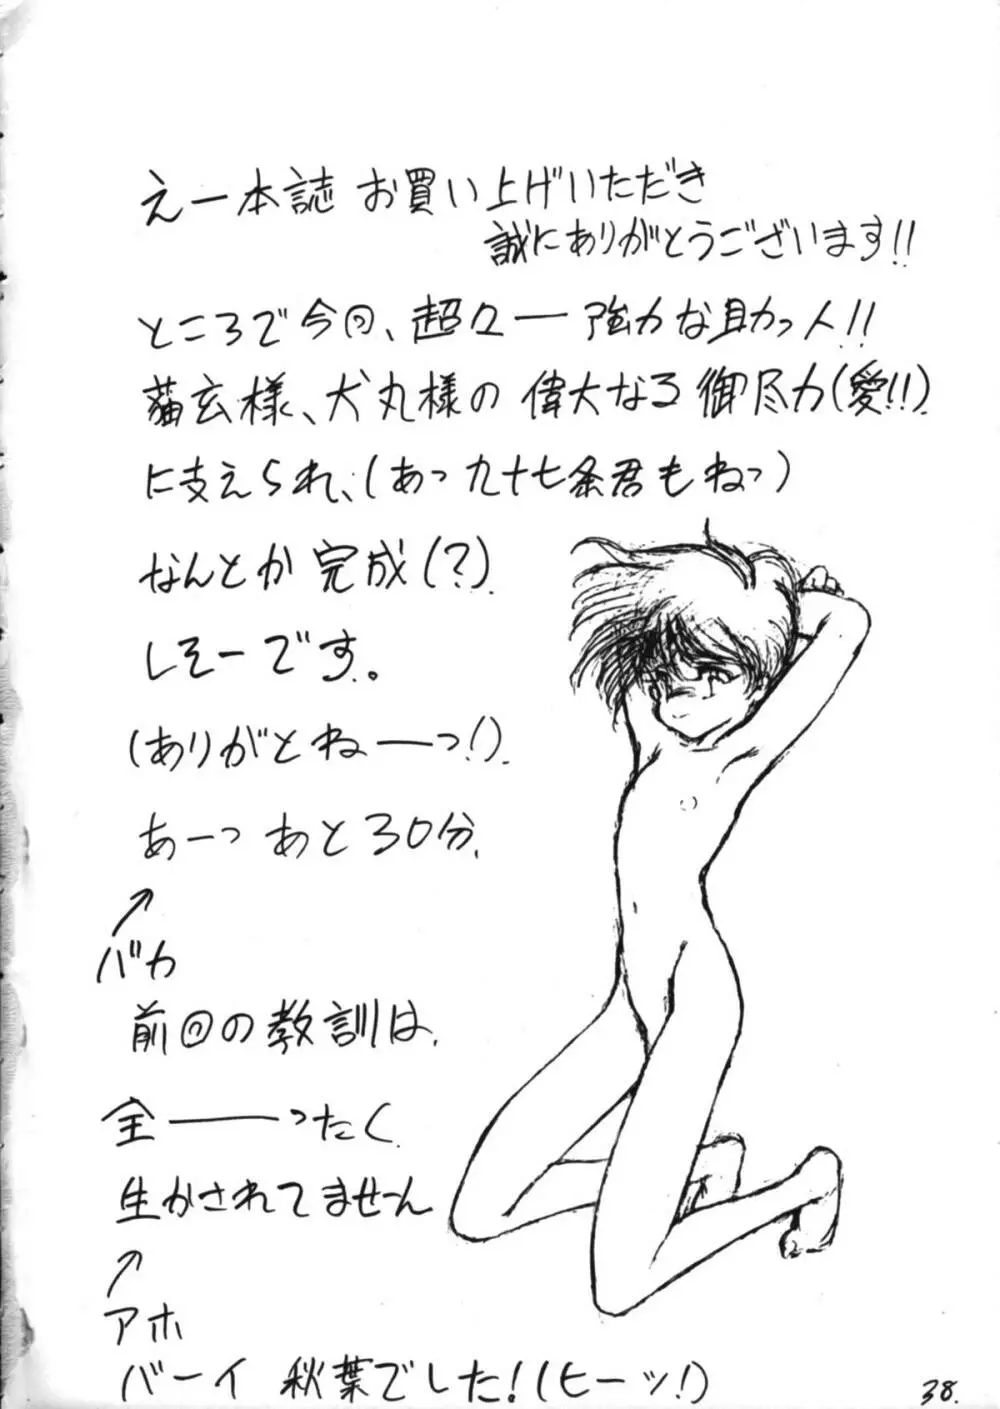 えー本誌 お買い上げいただき
誠にありがとうございます!!
ところで今回、超々ー強力な助っ人!!
猫玄様、犬丸様の 偉大なる 御尽力(愛!!)
に支えられ、(あっ九十七条君もねっ)
なんとか 完成(?)
しそーです。
(ありがとねーっ!)
あーっ あと30分.
↗
バカ
前回の教訓は
全ーーったく
生かされてませーん
↗
アホ
バーイ 秋葉でした!(ヒーッ!)
38.